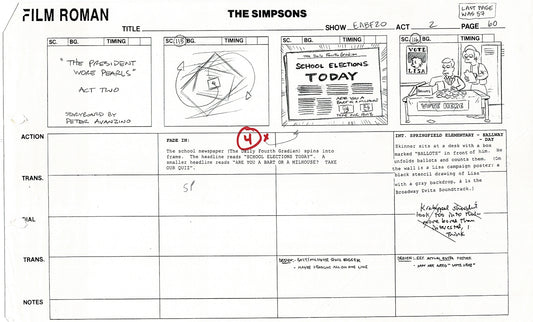 FILM ROMAN
THE SIMPSONS
LAST PAGE
WAS 57
TITLE
SHOW EABF20 ACT 2 PAGE 60
SC. BG. TIMING
SC. 115 BG. TIMING
SC. BG. TIMING
SC. 116 BG. TIMING
"THE PRESIDENT
WORE PEARLS"
ACT TWO
STORYBOARD BY
PETER AVANZINO
The Daily Fourth Gradian
SCHOOL ELECTIONS
TODAY
ARE YOU A
BART OR A MILHOUSE?
TAKE OUR QUIZ
VOTE
LISA
VOTE HERE
ACTION
4
FADE IN:
The school newspaper (The Daily Fourth Gradian) spins into
frame. The headline reads "SCHOOL ELECTIONS TODAY". A
smaller headline reads "ARE YOU A BART OR A MILHOUSE? TAKE
OUR QUIZ.
INT. SPRINGFIELD ELEMENTARY - HALLWAY
- DAY
Skinner sits at a desk with a box
marked "BALLOTS" in front of him. He
unfolds ballots and counts them. (On
the wall is a Lisa campaign poster: a
black stencil drawing of Lisa
with a gray backdrop, à la the
Broadway Evita Soundtrack.)
TRANS.
SP
DIAL
Krabappel shouldn't
look too into this-
more bored than
interested, I
think
TRANS.
DESIGN: BART/MILHOUSE QUIZ BIGGER
- MAYBE HEADLINE ALL ON ONE LINE
NOTES